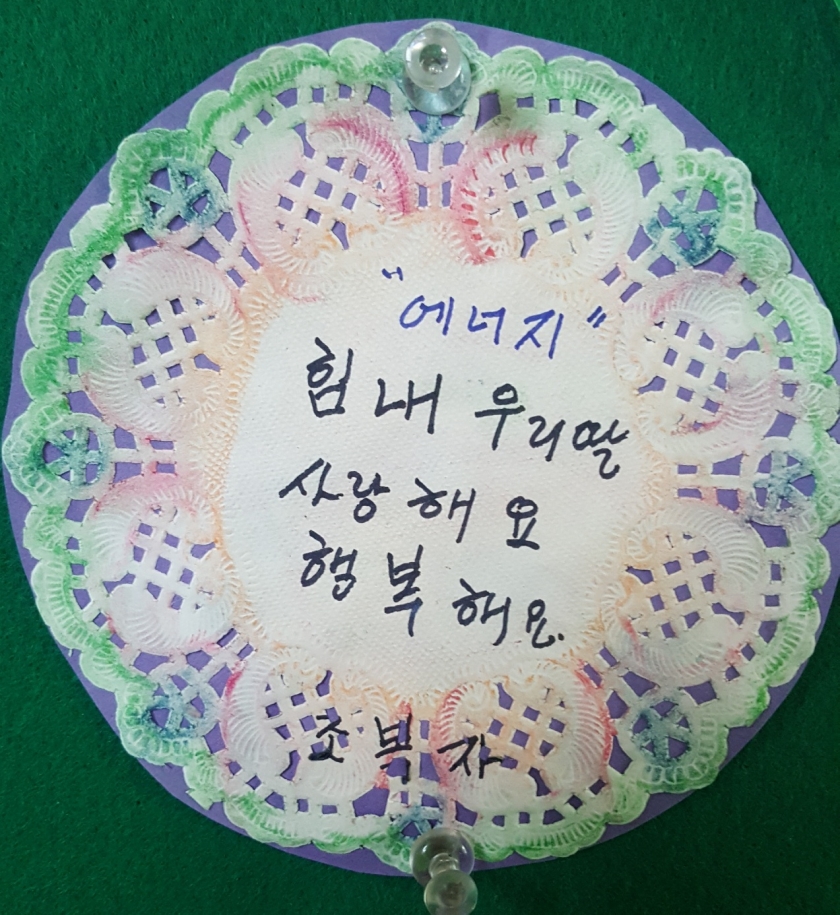 "에너지"
힘내 우리딸
사랑해요
행복해요.
조복자